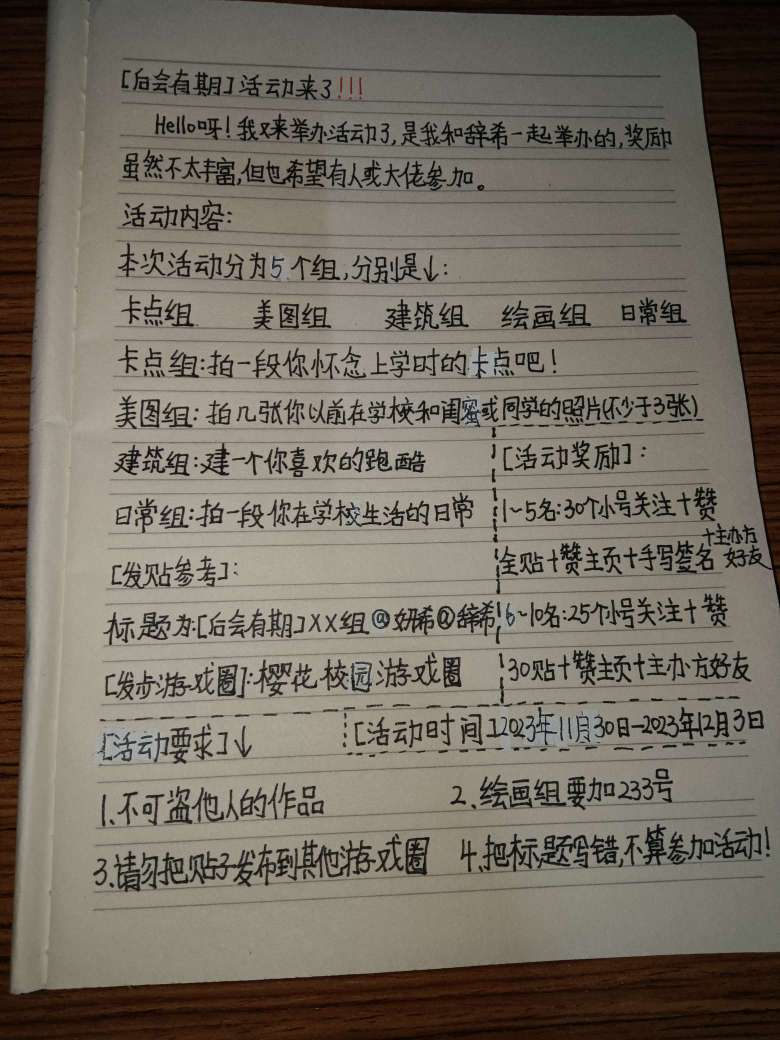 [后会有期]活动来了!!!
Hello呀!我又来举办活动了,是我和辞希一起举办的,奖励
虽然不太丰富,但也希望有人或大佬参加。
活动内容:
本次活动分为5个组,分别是↓:
卡点组 美图组 建筑组 绘画组 日常组
卡点组:拍一段你怀念上学时的卡点吧!
美图组:拍几张你以前在学校和闺蜜或同学的照片(不少于3张)
建筑组:建一个你喜欢的跑酷
[活动奖励]:
日常组:拍一段你在学校生活的日常
1~5名:30个小号关注+赞
[发贴参考]:
全贴+赞主页+手写签名+主办方好友
标题为:[后会有期]XX组@妍希@辞希
6~10名:25个小号关注+赞
[发步游戏圈]:樱花校园游戏圈
30贴+赞主页+主办方好友
[活动要求]↓
[活动时间]2023年11月30日-2023年12月3日
1.不可盗他人的作品
2.绘画组要加233号
3.请勿把贴子发布到其他游戏圈
4.把标题写错,不算参加活动!